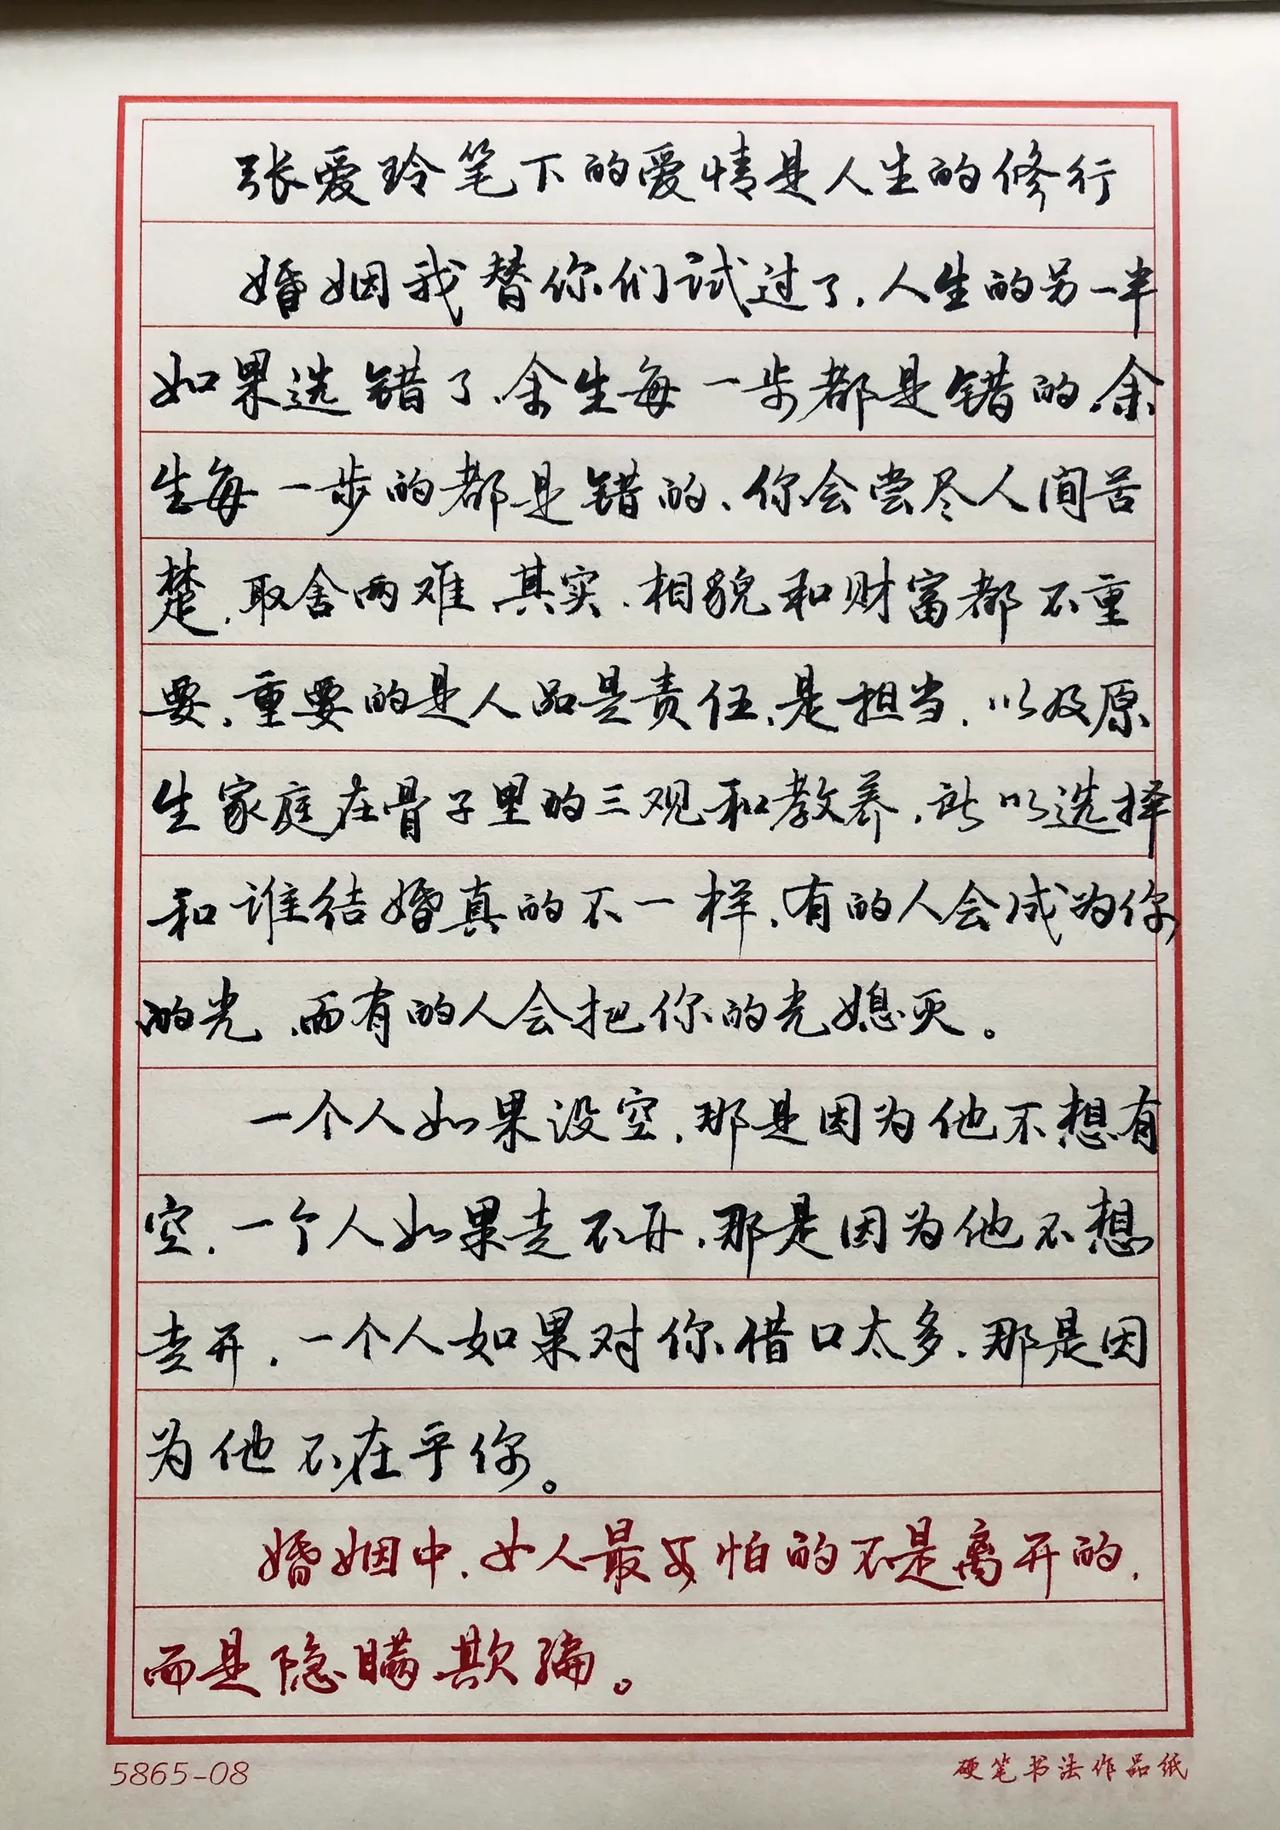 张爱玲笔下的爱情是人生的修行
婚姻我替你们试过了,人生的另一半
如果选错了、余生每一步都是错的、余
生每一步的都是错的、你会尝尽人间苦
楚,取舍两难 其实,相貌和财富都不重
要,重要的是人品是责任,是担当,以及原
生家庭在骨子里的三观和教养,所以选择
和谁结婚真的不一样,有的人会成为你
的光、而有的人会把你的光熄灭。
一个人如果没空,那是因为他不想有
空,一个人如果走不开,那是因为他不想
走开,一个人如果对你借口太多,那是因
为他不在乎你。
婚姻中,女人最可怕的不是离开的,
而是隐瞒欺骗。
5865-08
硬笔书法作品纸